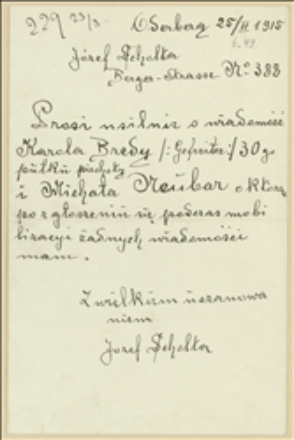 229 23/3
Oderberg 25/II 1915
Józef Scholtka
Berger-Strasse No 388
Prosi usilnie o wiadomość
Karola Bredy /: Gefreiter :/ 30go
pułku piechoty
i Michała Neubar o których
po zgłoszeniu się podczas mobi
lizacyi żadnych wiadomości
mam.
Z wielkim uszanowa
niem
Josef Scholtka